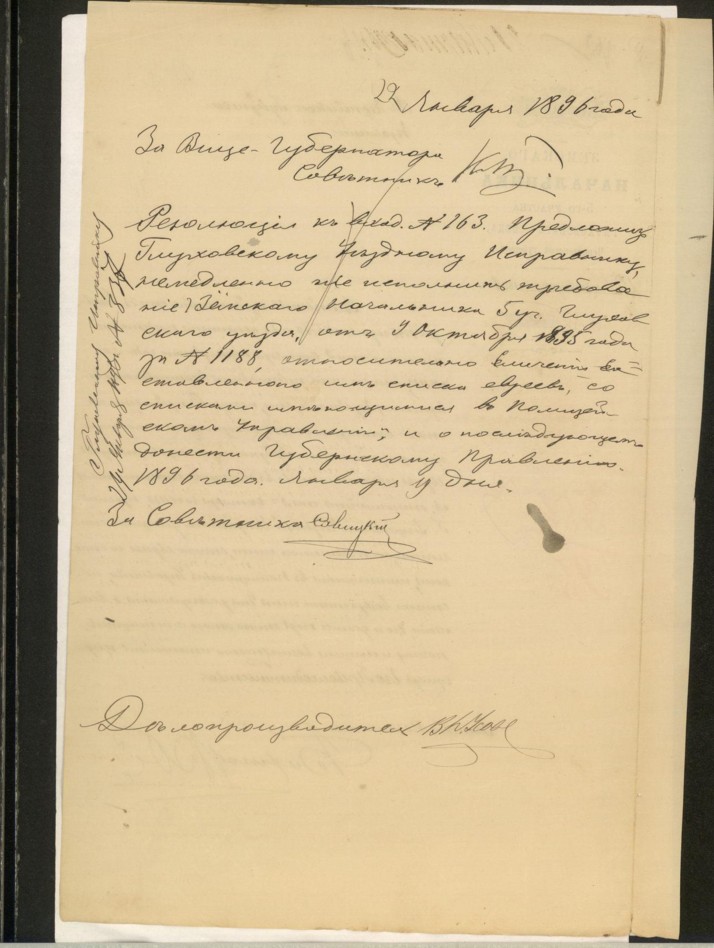 19 Января 1896 года
За Вице-Губернатора
Совѣтникъ
Резолюція къ вход. № 163. Предложить
Глуховскому Уѣздному Исправнику,
немедленно же исполнить требова
ніе Земскаго Начальника 5 уч. Глухов
скаго уѣзда, отъ 9 Октября 1895 года
за № 1188, относительно сличенія со=
ставленнаго имъ списка евреевъ, со
списками имѣющимися въ Полицей-
скомъ Управленіи, и о послѣдующемъ
донести Губернскому Правленію.
1896 года. Января 19 дня.
За Совѣтника
Дѣлопроизводитель
Глуховскому Исправнику
Января 1896 г. №